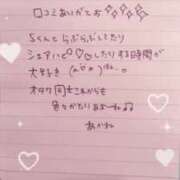 口コミありがてお✨✨✨
Sくんとらぶらぶしたり
シェアハピ♡したりする時間が
大好き
オタク同士これからも
色々かたりあおーね♫
あかね